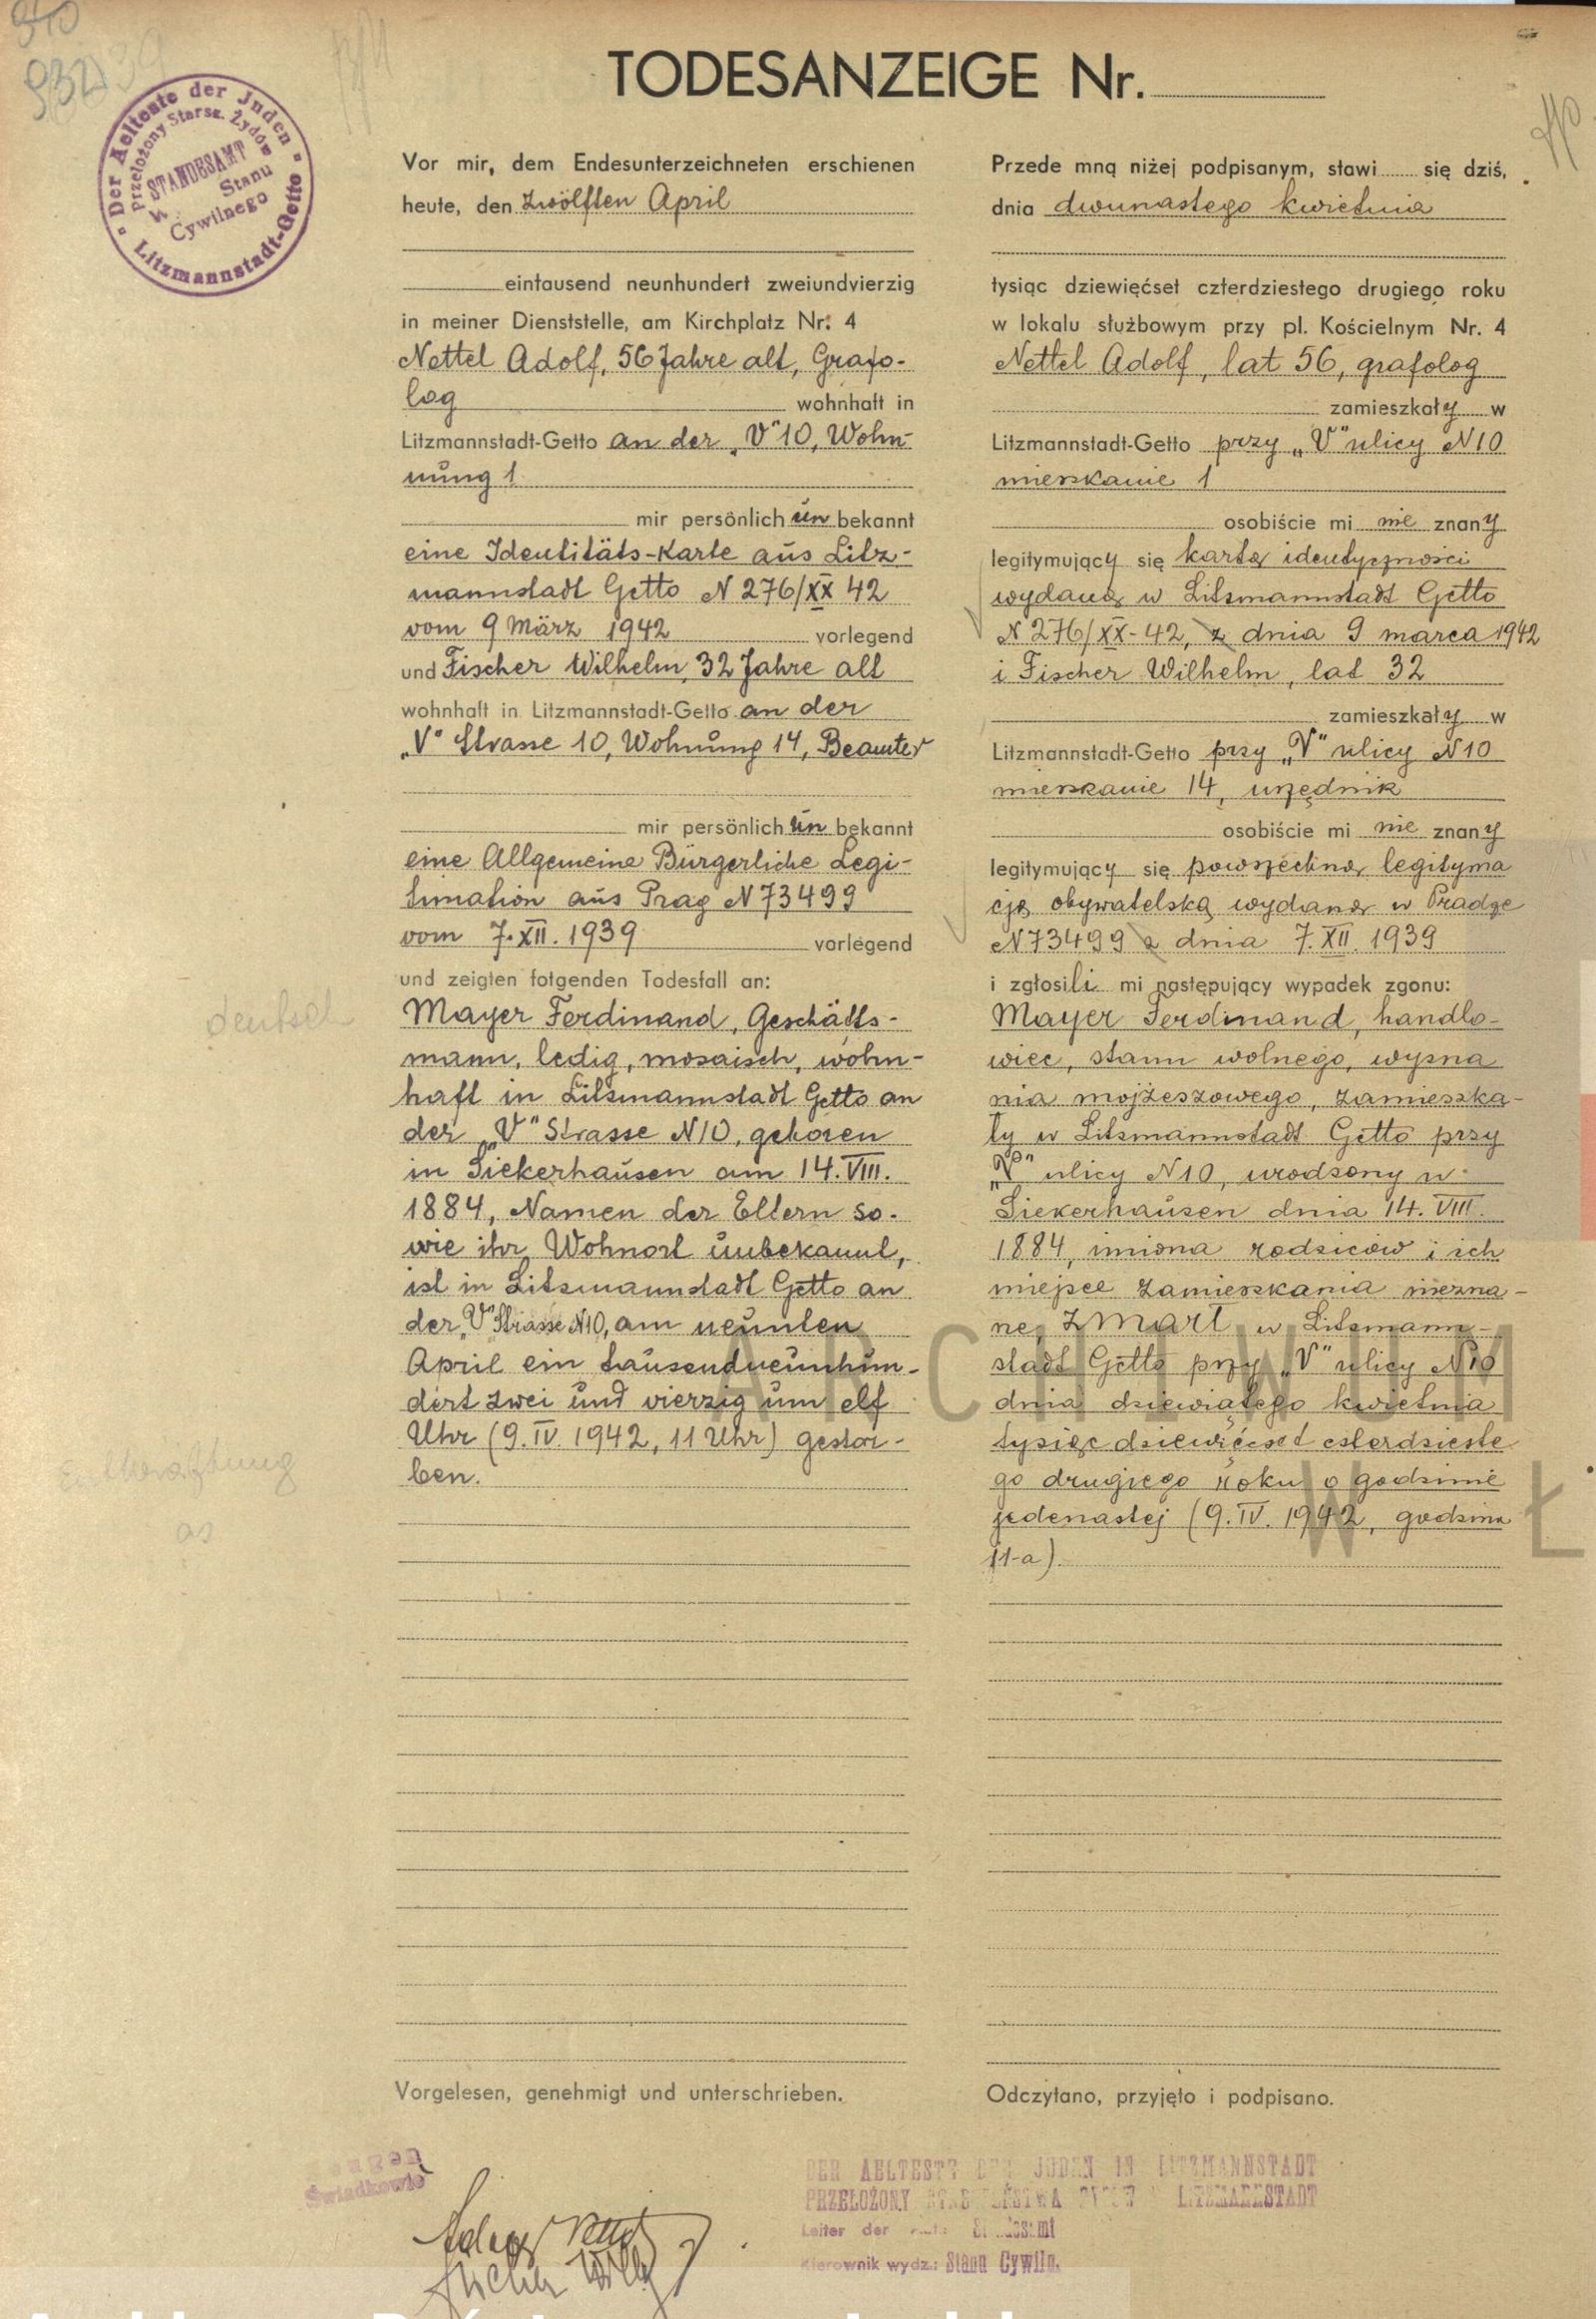 TODESANZEIGE Nr.
Der Aelteste der Juden
Litzmannstadt-Getto
Przełożony Starsz. Żydów
STANDESAMT
W. Stanu
Cywilnego
Vor mir, dem Endesunterzeichneten erschienen
heute, den zwölften April
eintausend neunhundert zweiundvierzig
in meiner Dienststelle, am Kirchplatz Nr. 4
Nettel Adolf, 56 Jahre alt, Grafo-
log wohnhaft in
Litzmannstadt-Getto an der „V" 10, Wohn-
nung 1
mir persönlich un bekannt
eine Identitäts-Karte aus Litz-
mannstadt Getto N 276/XX 42
vom 9 März 1942 vorlegend
und Fischer Wilhelm, 32 Jahre alt
wohnhaft in Litzmannstadt-Getto an der
„V" Strasse 10, Wohnung 14, Beamter
mir persönlich un bekannt
eine Allgemeine Bürgerliche Legi-
timation aus Prag N 73499
vom 7.XII.1939 vorlegend
und zeigten folgenden Todesfall an:
deutsch
Mayer Ferdinand, Geschäfts-
mann, ledig, mosaisch, wohn-
haft in Litzmannstadt Getto an
der „V" Strasse N10, geboren
in Siekerhausen am 14.VIII.
1884, Namen der Eltern so-
wie ihr Wohnort unbekannt,
ist in Litzmannstadt Getto an
der „V" Strasse N10, am neunten
April ein tausendneunhun-
dert zwei und vierzig um elf
Uhr (9.IV.1942, 11 Uhr) gestor-
ben.
Entkräftung
Vorgelesen, genehmigt und unterschrieben.
Przede mną niżej podpisanym, stawi się dziś,
dnia dwunastego kwietnia
tysiąc dziewięćset czterdziestego drugiego roku
w lokalu służbowym przy pl. Kościelnym Nr. 4
Nettel Adolf, lat 56, grafolog
zamieszkały w
Litzmannstadt-Getto przy „V" ulicy N10
mieszkanie 1
osobiście mi nie znany
legitymujący się kartą identyczności
wydaną w Litzmannstadt Getto
N 276/XX-42, z dnia 9 marca 1942
i Fischer Wilhelm, lat 32
zamieszkały w
Litzmannstadt-Getto przy „V" ulicy N10
mieszkanie 14, urzędnik
osobiście mi nie znany
legitymujący się powszechną legityma
cją obywatelską wydaną w Pradze
N73499 z dnia 7.XII.1939
i zgłosili mi następujący wypadek zgonu:
Mayer Ferdinand, handlo-
wiec, stanu wolnego, wyzna
nia mojżeszowego, zamieszka-
ły w Litzmannstadt Getto przy
„V" ulicy N10, urodzony w
Siekerhausen dnia 14.VIII.
1884, imiona rodziców i ich
miejsce zamieszkania niezna-
ne, zmarł w Litzmann-
stadt Getto przy „V" ulicy N10
dnia dziewiątego kwietnia
tysiąc dziewięćset czterdzieste
go drugiego roku o godzinie
jedenastej (9.IV.1942, godzina
11-a).
Odczytano, przyjęto i podpisano.
ARCHIWUM
W Ł
Zeugen
Świadkowie
DER AELTESTE DER JUDEN IN LITZMANNSTADT
PRZEŁOŻONY LITZMANNSTADT
Leiter der
Kierownik wydz.: Stanu Cywiln.